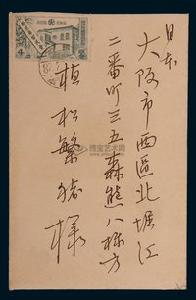 日本
大阪市西區北堀江
二番町三五森熊八様方
植松繁緒様